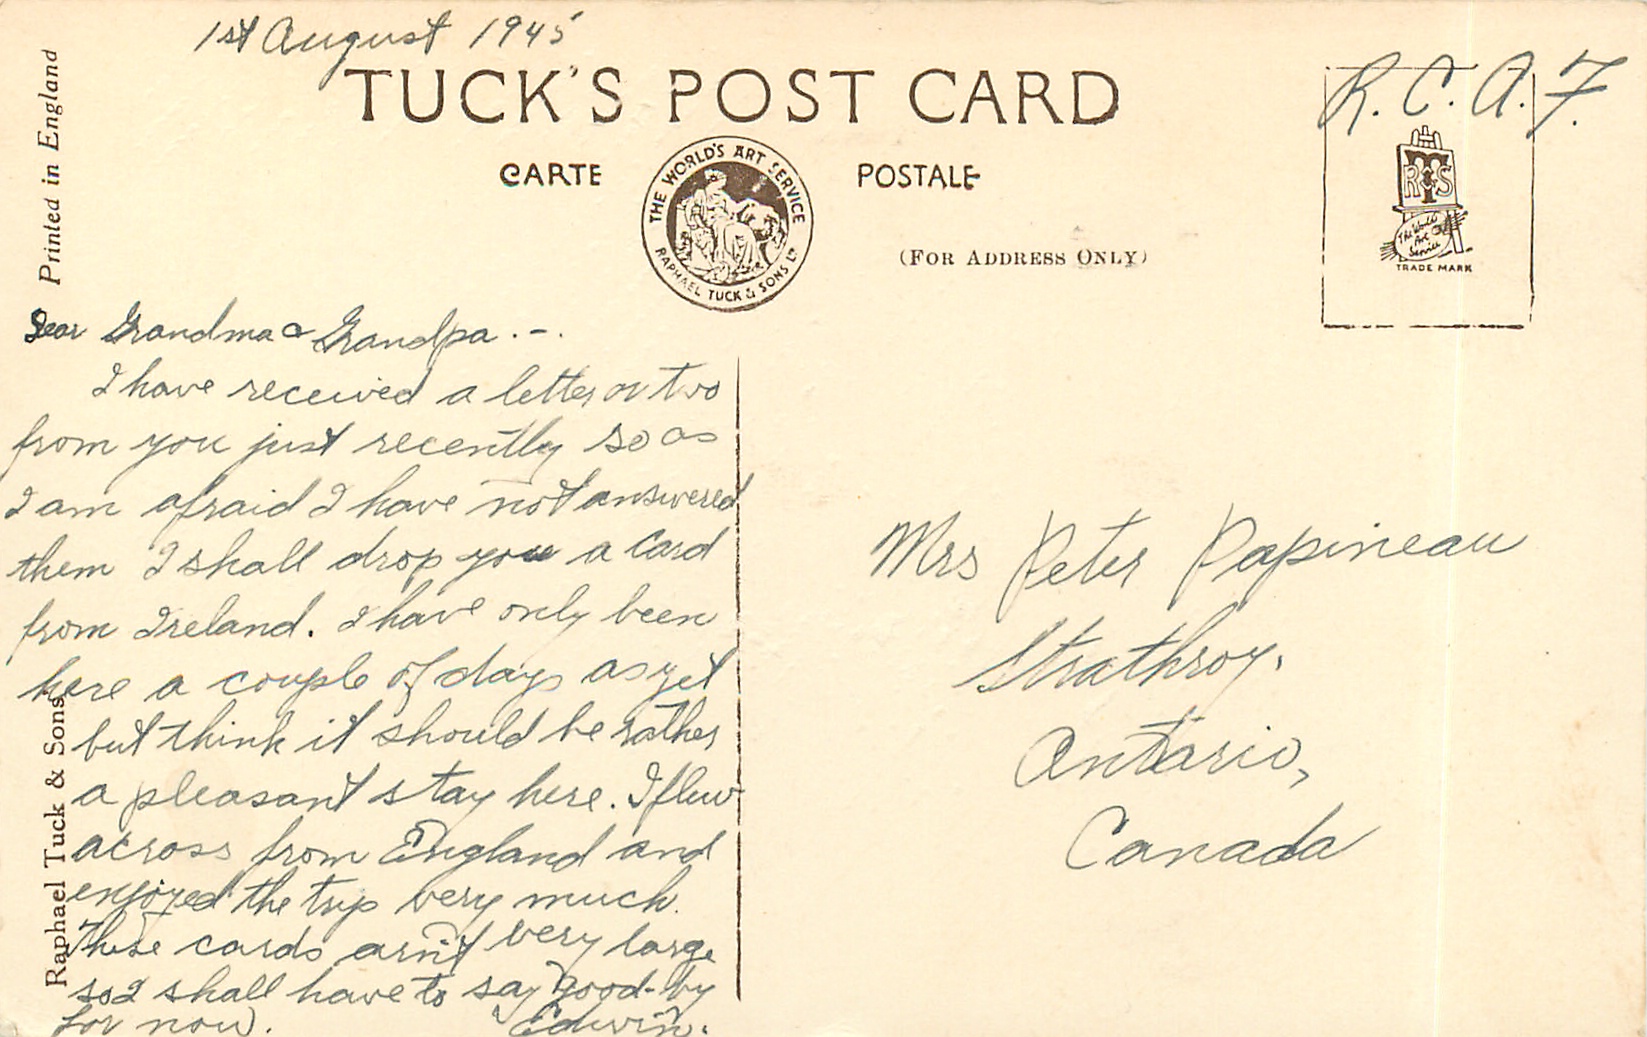 1st August 1945
R. C. A. F.
TUCK'S POST CARD
CARTE POSTALE
THE WORLD'S ART SERVICE
RAPHAEL TUCK & SONS LD
(FOR ADDRESS ONLY)
RTS
The World's
Art
Service
TRADE MARK
Printed in England
Raphael Tuck & Sons
Dear Grandma & Grandpa . - .
I have received a letter or two
from you just recently so as
I am afraid I have not answered
them I shall drop you a card
from Ireland. I have only been
here a couple of days as yet
but think it should be rather
a pleasant stay here. I flew
across from England and
enjoyed the trip very much.
These cards arn't very large
so I shall have to say good-by
for now. Edwin.
Mrs Peter Papineau
Strathroy.
Ontario,
Canada